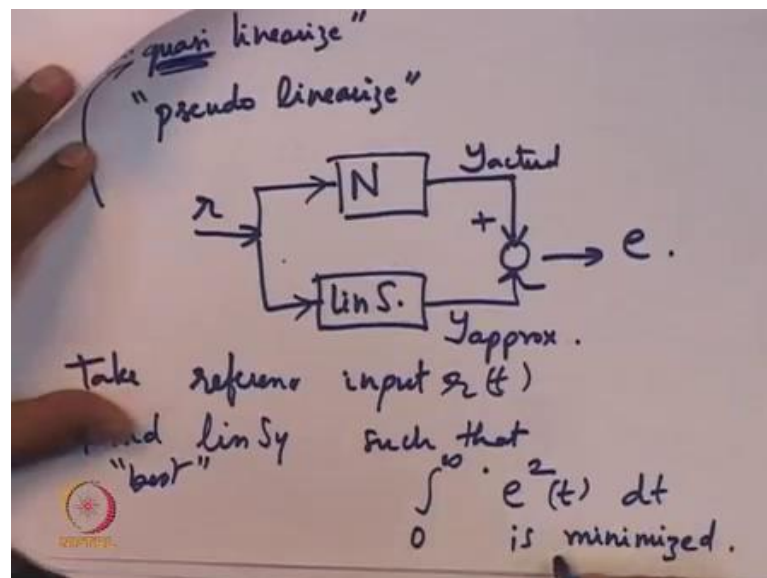 "quasi linearize"
"pseudo linearize"
N
yactual
r
+
e.
Lin S.
yapprox.
Take reference input r(t)
lin Sy such that
"best"
∫₀^∞ e²(t) dt
is minimized.
NPTEL